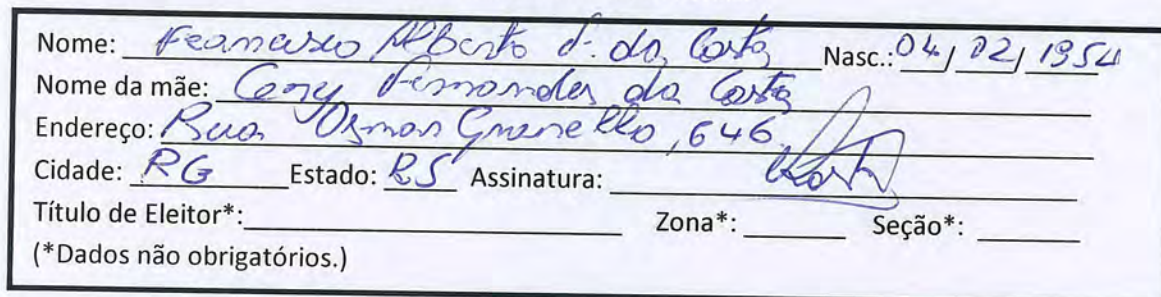 Nome: Francisco Alberto F. da Costa Nasc.: 04/02/1954
Nome da mãe: Fernandes da Costa
Endereço: Rua Osman, 646
Cidade: RG Estado: RS Assinatura: Costa
Título de Eleitor*: Zona*: Seção*:
(*Dados não obrigatórios.)